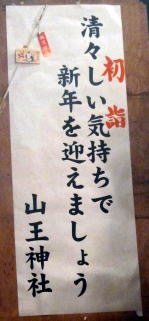 初詣
清々しい気持ちで
新年を迎えましょう
山王神社